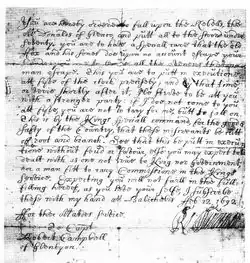 You are hereby ordered to fall upon the Rebels, the
McDonalds of Glenco, and putt all to the sword under
seventy. you are to have a speciall care that the old
fox and his sones doe upon no account escape your
hands, you are to secure all the avenues that no
man escape. This you are to putt in execution
att fyve of the clock precisely; and by that time
or very shortly after it, I'le strive to be att you
with a stronger party: if I doe not come to you
att fyve, you are not to tary for me, but to fall on.
This is by the Kings speciall command, for the good &
safty of the Country, that these miscreants be cutt
off root and branch. See that this be putt in execu
tione without feud or favour, else you may expect to be
dealt with as one not true to King nor Government,
nor a man fitt to cary Commissione in the Kings
service. Expecting you will not faill in the full-
filling hereof, as you love your selfe, I subscribe
these with my hand att Balicholis Feb: 12, 1692
For their Maties service
To Capt
Robert Campbell
of Glenlyon